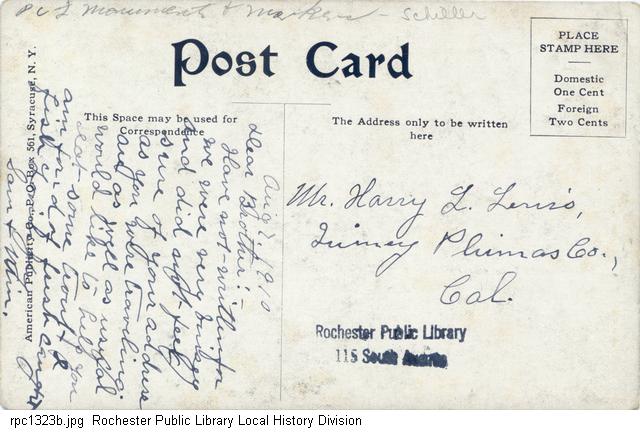 PC2 Monuments & Markers - Schiller
Post Card
PLACE
STAMP HERE
Domestic
One Cent
Foreign
Two Cents
This Space may be used for
Correspondence
The Address only to be written
here
American Publicity Co., P.O. Box 561, Syracuse, N. Y.
Aug 7 1910
Dear Brother:-
Have not written for
we were very busy
and did not feel
sure of your address
as you were traveling.
and as well as usual
would like to help you
eat some trout. I
am fond of fish caught
Mr. Harry L. Lewis,
Quincy Plumas Co.,
Cal.
Rochester Public Library
115 South Avenue
rpc1323b.jpg Rochester Public Library Local History Division